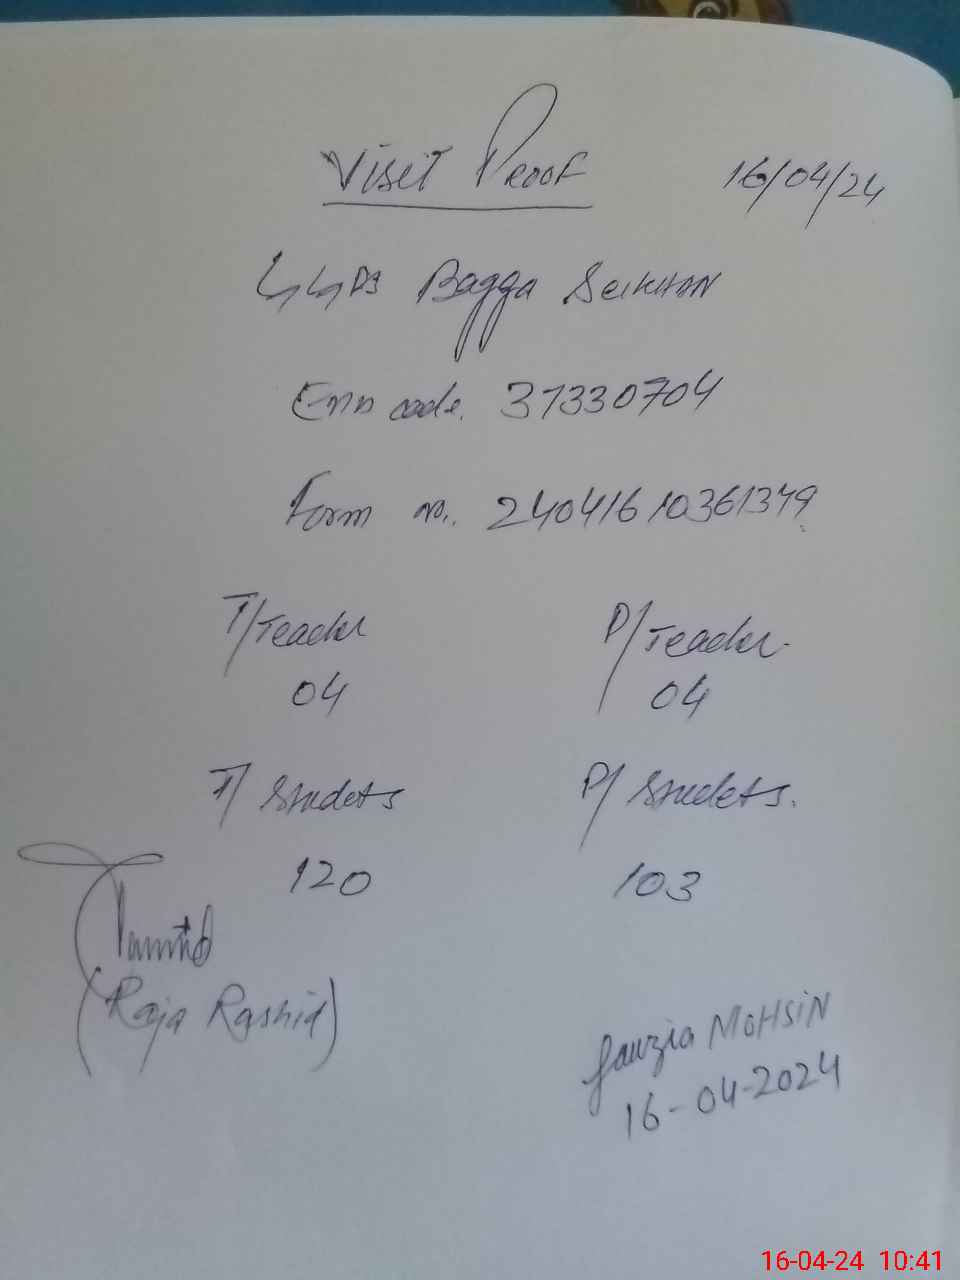 Visit Proof 16/04/24
GGPS Bagga Seikhan
Emn code. 37330704
Form no. 24041610361349
T/Teacher P/Teacher.
04 04
T/ Studets P/ Studets.
120 103
(Raja Rashid)
Fauzia MOHSIN
16-04-2024
16-04-24 10:41